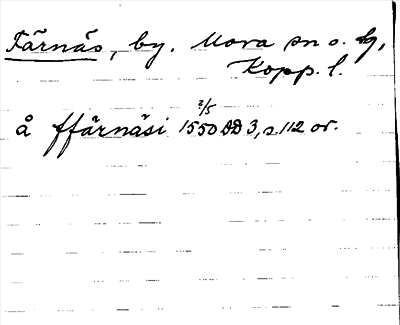 Färnäs, by. Mora sn o. hg,
Kopp. l.
2/5
å ffärnäsi 1550 DD 3, s. 112 or.